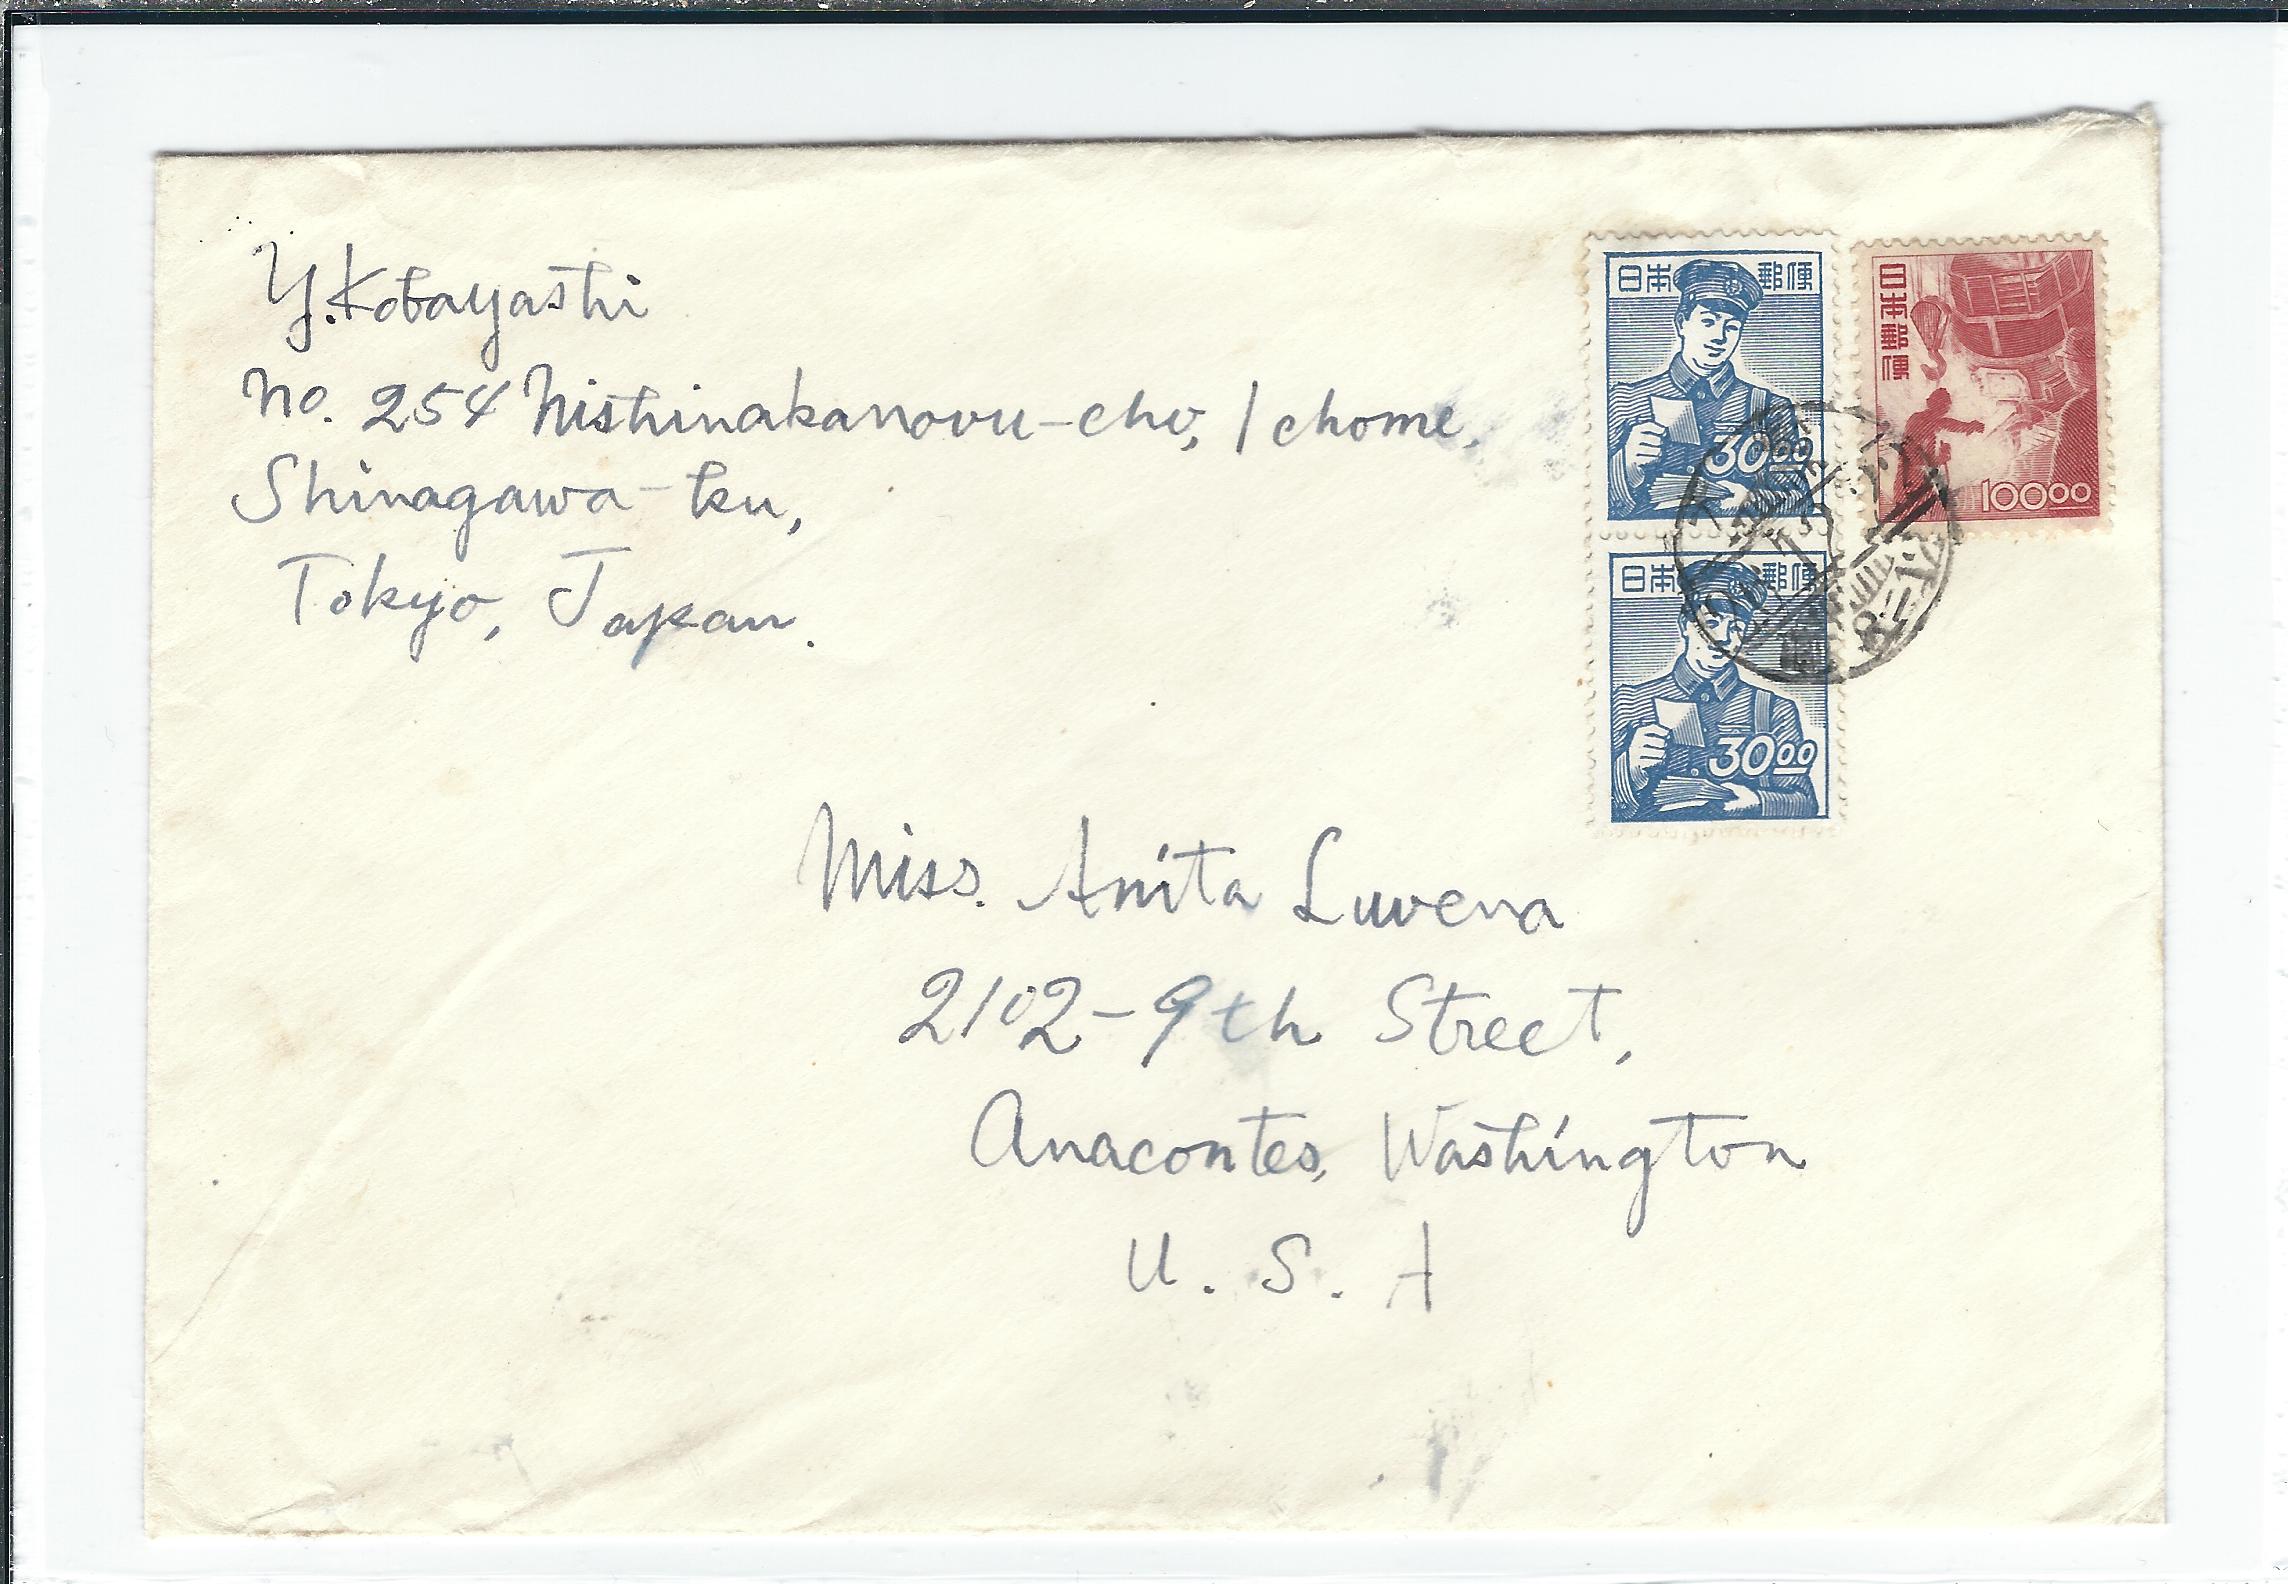 Y. Kobayashi
No. 254 Nishinakanobu-cho, 1 chome,
Shinagawa-ku,
Tokyo, Japan.
日本郵便
30.00
日本郵便
30.00
日本郵便
100.00
Miss. Anita Luvera
2102-9th Street,
Anacontes, Washington
U. S. A